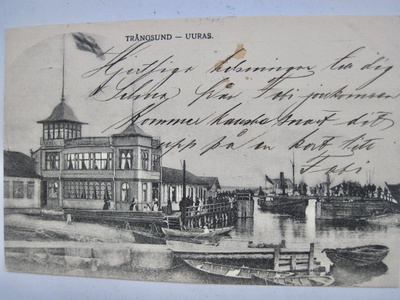 TRÅNGSUND — UURAS.
Hjertliga helsningar till dig
Selma från Tobi
Kommer kanske snart dit
upp på en kort titt
Tobi